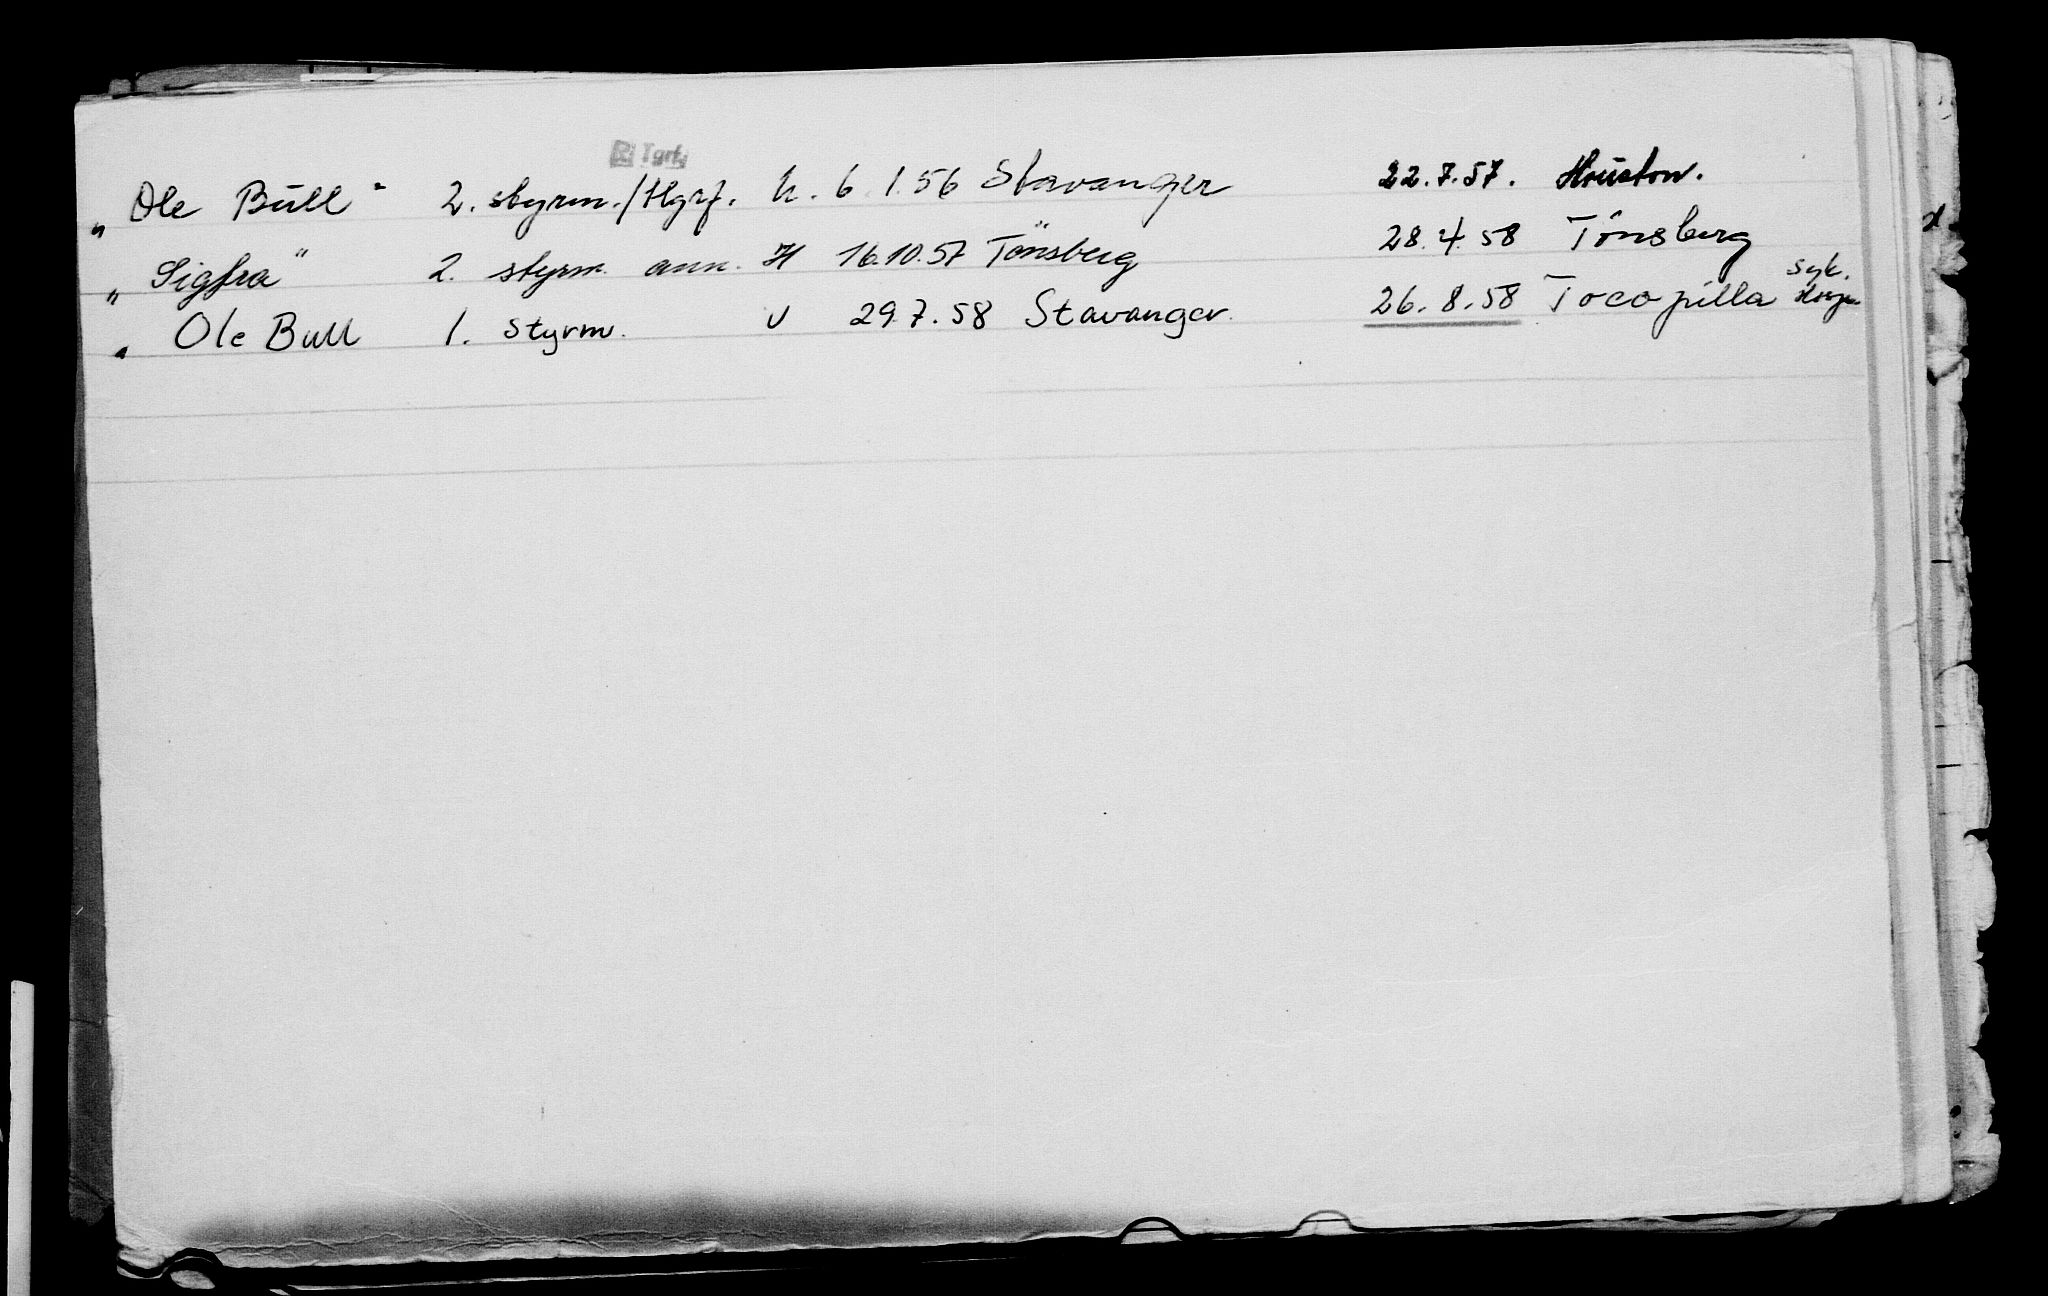 R Tgrf.
„ Ole Bull " 2. styrm./tlgrf. h. 6.1.56 Stavanger 22.7.57. Houston.
„ Sigfra " 2. styrm. ann. H 16.10.57 Tönsberg 28.4.58 Tönsberg
„ Ole Bull 1. Styrm. U 29.7.58 Stavanger. 26.8.58 Tocopilla syk. Hosp.